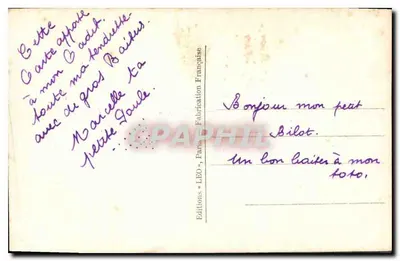 Cette
Carte apporte
à mon Cadet
toute ma tendresse
avec de gros Baisers
Marcelle ta
petite Poule.
Editions "LEO", Paris Fabrication Française
CPAPHIL
Bonjour mon petit
Bilot.
Un bon baiser à mon
toto.